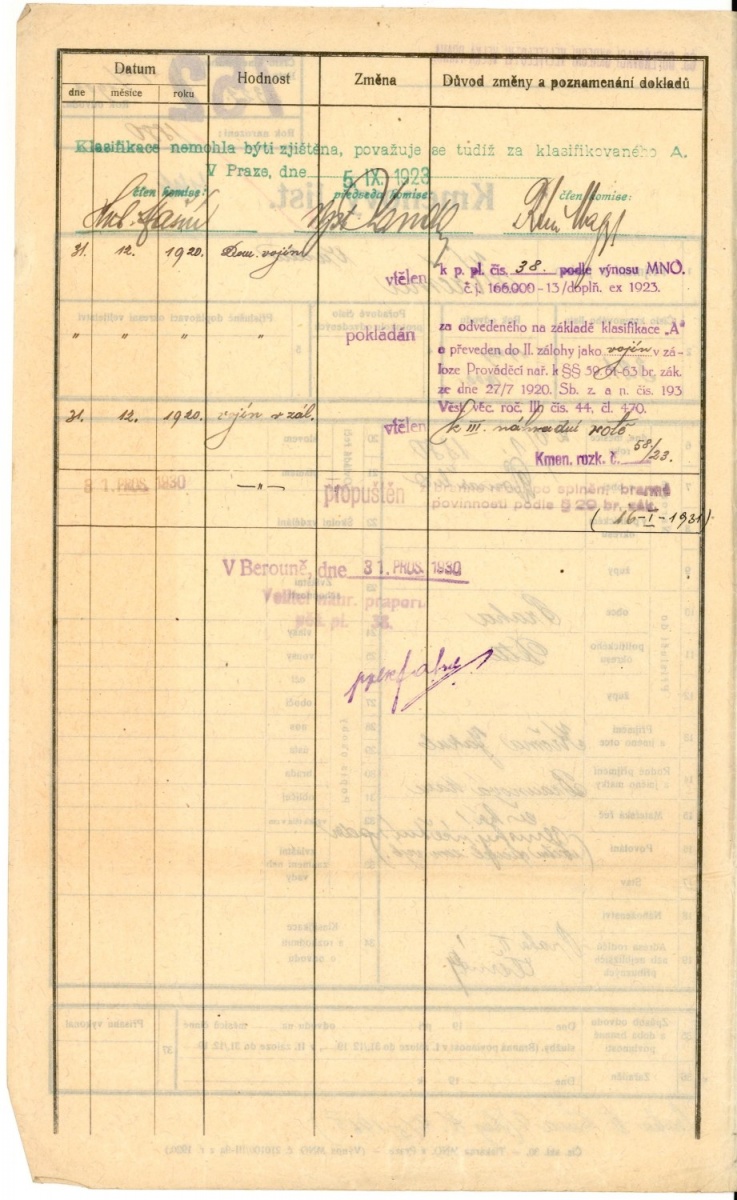 Datum Hodnost Změna Důvod změny a poznamenání dokladů
dne měsíce roku
Klasifikace nemohla býti zjištěna, považuje se tudíž za klasifikovaného A.
V Praze, dne 5 IX. 1923
člen komise: předseda komise: člen komise:
31. 12. 1920. Dom. vojín vtělen k p. pl. čís. 38. podle výnosu MNO.
č. j. 166.000-13/doplň. ex 1923.
" " " " pokládán za odvedeného na základě klasifikace „A"
a převeden do II. zálohy jako vojín v zá-
loze Prováděcí nař. k §§ 59, 61-63 br. zák.
ze dne 27/7 1920. Sb. z. a n. čís. 193
Věst. věc. roč. III. čís. 44, čl. 470.
31. 12. 1920. vojín v zál. vtělen k III. náhradní rotě
Kmen. rozk. č. 58/23.
31. PROS. 1930 —"— propuštěn po splnění branné
povinnosti podle § 29 br. zák.
(16-I-1931)
V Berouně, dne 31. PROS. 1930
Velitel náhr. praporu
pěš. pl. 38.